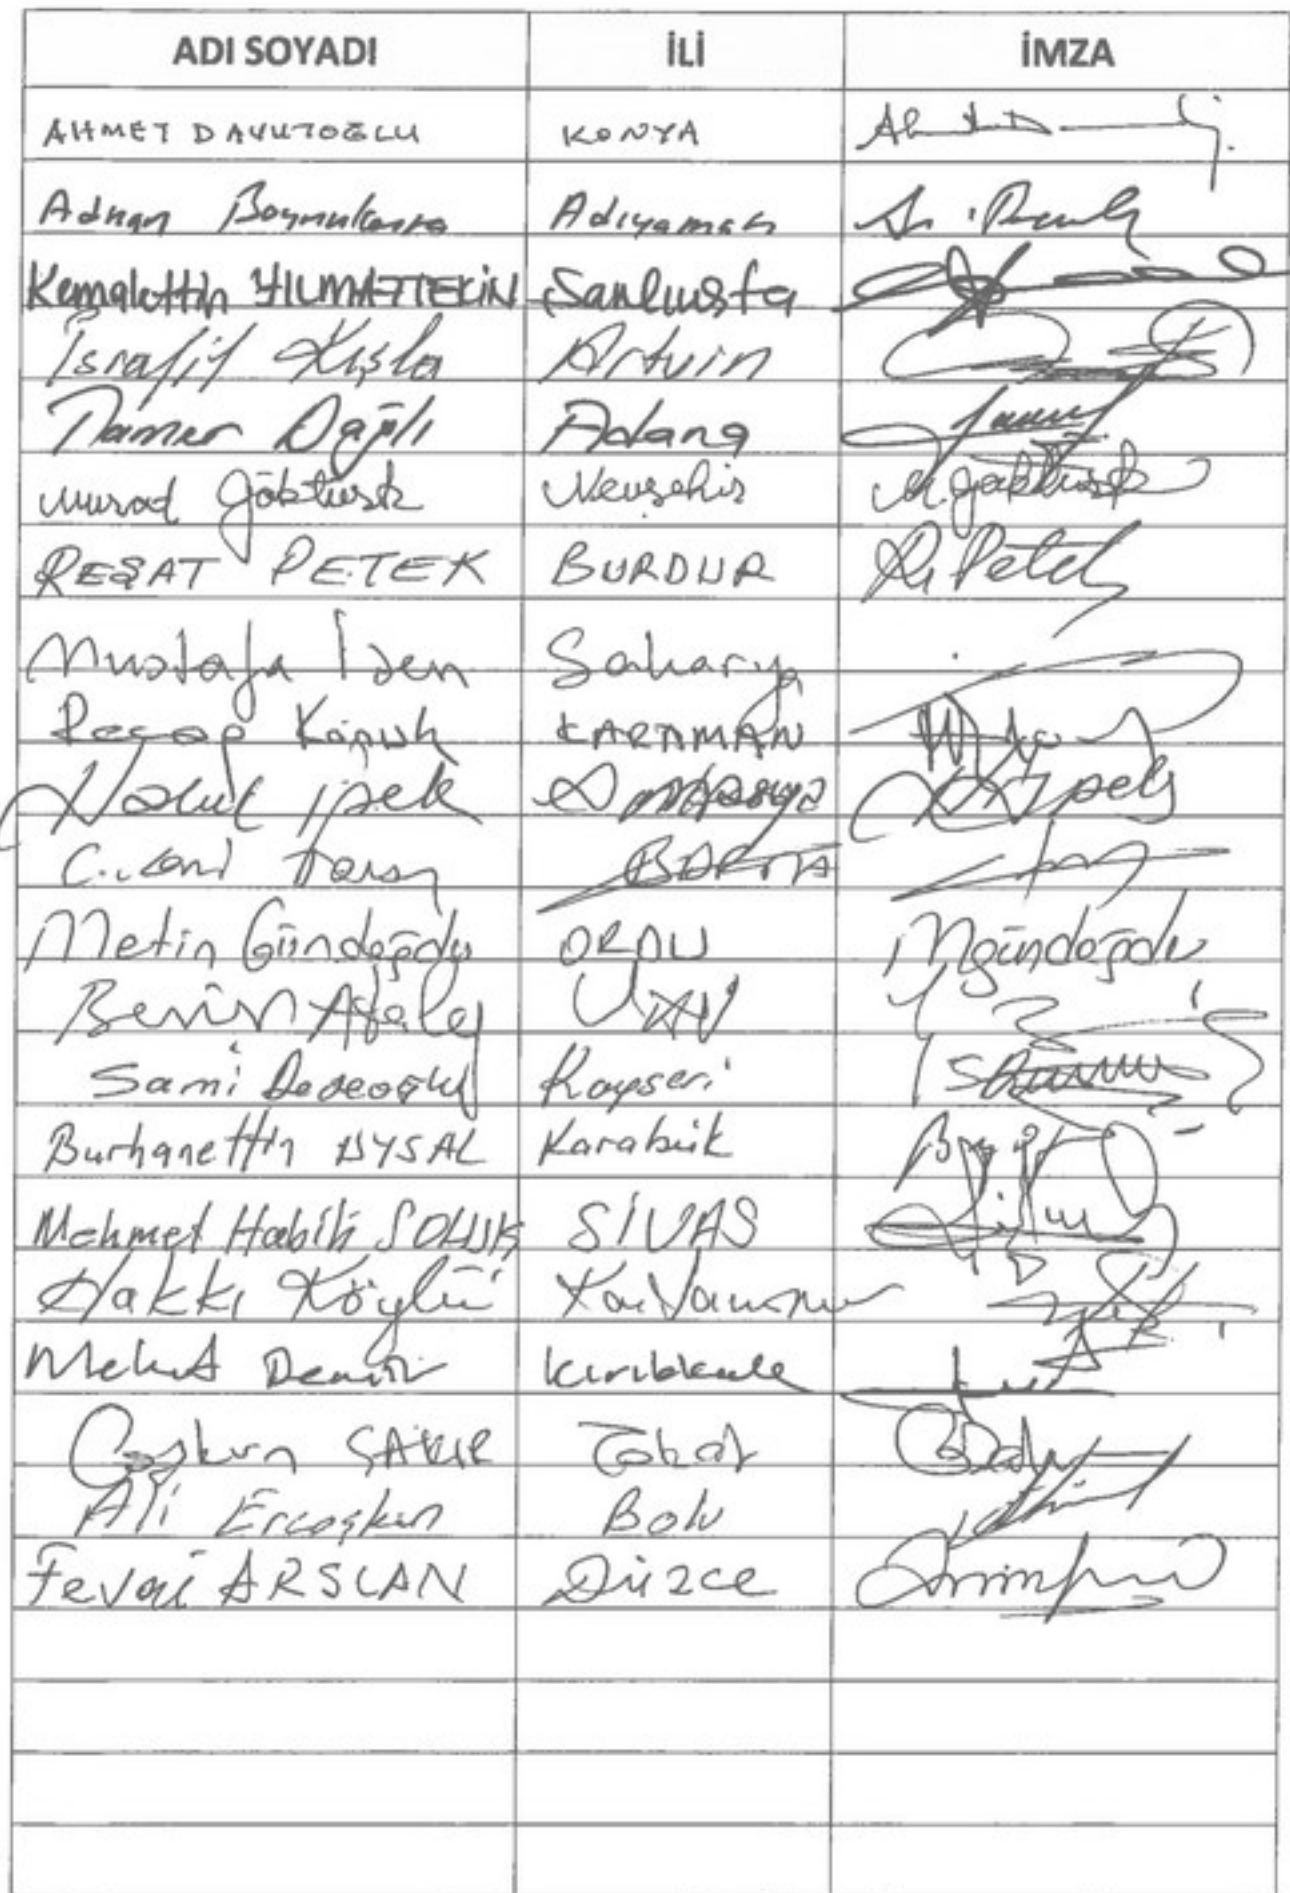 ADI SOYADI İLİ İMZA
AHMET DAVUTOĞLU KONYA
Adnan Boynukara Adıyaman
Kemalettin YILMAZTEKİN Şanlıurfa
İsrafil Kışla Artvin
Tamer Dağlı Adana
Murad Göktürk Nevşehir M.Göktürk
REŞAT PETEK BURDUR R. Petek
Mustafa İsen Sakarya
Recep Konuk KARAMAN
Haluk ipek Amasya H.ipek
BARTIN
Metin Gündoğdu ORDU Mgündoğdu
Sami Dedeoğlu Kayseri
Burhanettin UYSAL Karabük
Mehmet Habib SOLUK SİVAS
Hakkı Köylü Kastamonu
Mehmet Demir Kırıkkale
Coşkun ÇAKIR Tokat
Ali Ercoşkun Bolu
Fevai ARSLAN Düzce